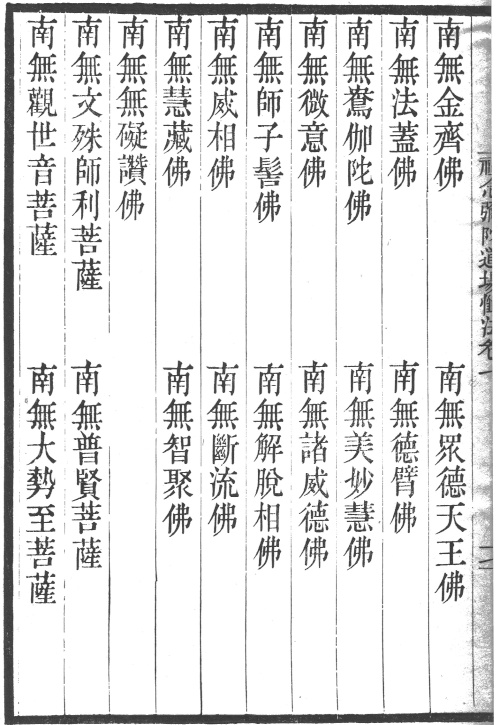 彌陀道場懺法卷
南無金齊佛　南無眾德天王佛
南無法蓋佛　南無德臂佛
南無鴦伽陀佛　南無美妙慧佛
南無微意佛　南無諸威德佛
南無師子髻佛　南無解脫相佛
南無威相佛　南無斷流佛
南無慧藏佛　南無智聚佛
南無無礙讚佛
南無文殊師利菩薩　南無普賢菩薩
南無觀世音菩薩　南無大勢至菩薩